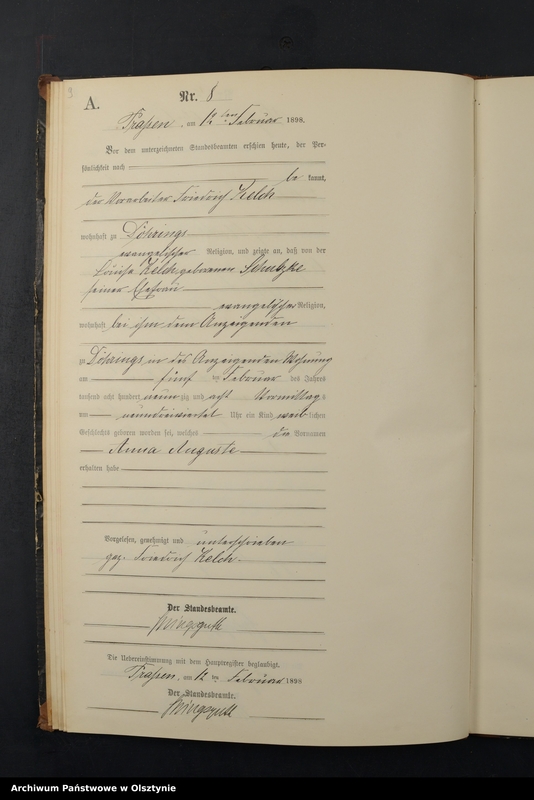 9
A.
Nr. 8
Prassen, am 12ten Februar 1898.
Vor dem unterzeichneten Standesbeamten erschien heute, der Per-
sönlichkeit nach
be kannt,
der Vorarbeiter Friedrich Kelch
wohnhaft zu Döhrings
evangelischer Religion, und zeigte an, daß von der
Louise Kelch geborenen Schulzke
seiner Ehefrau
evangelischer Religion,
wohnhaft bei ihm dem Anzeigenden
zu Döhrings in des Anzeigenden Wohnung
am fünf ten Februar des Jahres
tausend acht hundert neun zig und acht Vormittags
um neundreiviertel Uhr ein Kind weib lichen
Geschlechts geboren worden sei, welches die Vornamen
Anna Auguste
erhalten habe
Vorgelesen, genehmigt und unterschrieben
gez. Friedrich Kelch.
Der Standesbeamte.
Die Uebereinstimmung mit dem Hauptregister beglaubigt.
Prassen, am 12 ten Februar 1898
Der Standesbeamte.
Archiwum Państwowe w Olsztynie